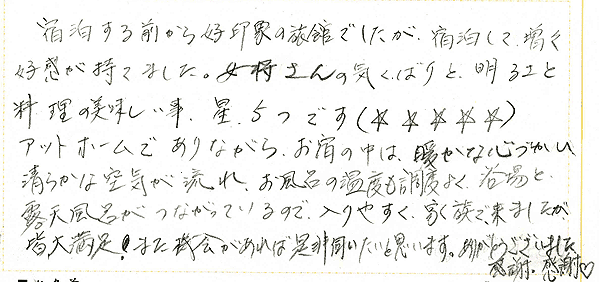 宿泊する前から好印象の旅館でしたが、宿泊して、増々
好感が持てました。女将さんの気くばりと、明るさと
料理の美味しい事、星、5つです(☆☆☆☆☆)
アットホームでありながら、お宿の中は、暖かな心づかい
清らかな空気が流れ、お風呂の温度も調度よく、浴場と、
露天風呂がつながっているので、入りやすく、家族で来ましたが
皆大満足!また機会があれば是非伺いたいと思います。ありがとうございました
感謝。感謝♡